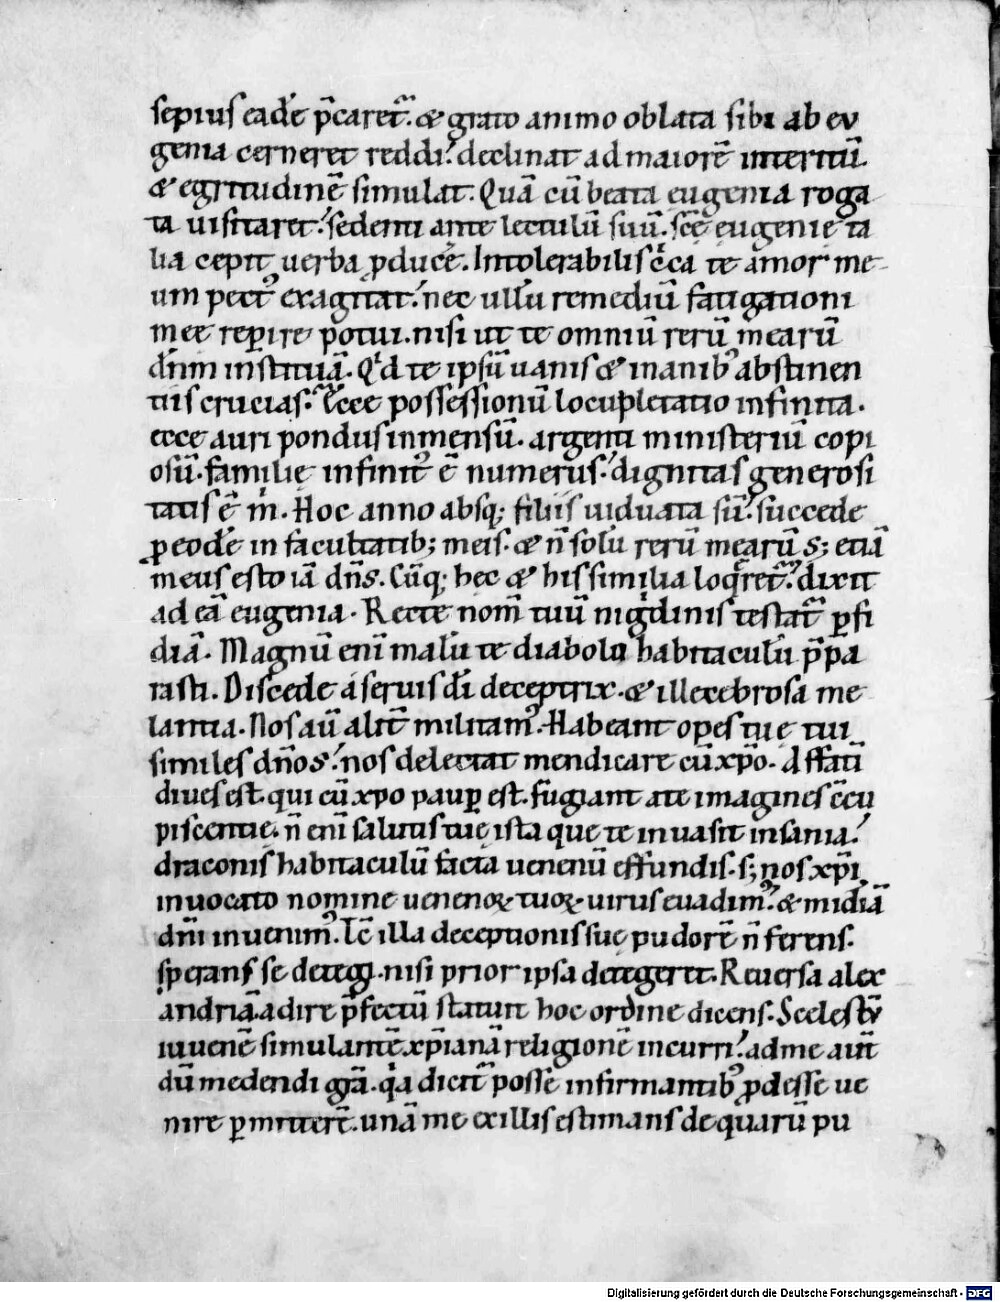 sepius eadē p̄caret᷑. & grato animo oblata sibi ab eu
genia cerneret reddi. declinat ad maiorē interitū.
& egritudinē simulat. Quā cū beata eugenia roga
ta uisitaret. sedenti ante lectulū suū. sc̄ę eugenię ta
lia cepit uerba ꝓducē. Intolerabilis c̄ca te amor me
um pect᷒ exagitat. nec ullū remediū fatigationi
meę reꝑire potui. nisi ut te omniū rerū mearū
dn̄m instituā. Qͥd te ipsū uanis & inanib᷒ abstinen
tiis crucias. Ecce possessionū locupletatio infinita.
ecce auri pondus inmensū. argenti ministeriū copi
osū. familię infinit᷒ ē numerus. dignitas generosi
tatis ē m̄. Hoc anno absq; filiis uiduata sū. succede
ꝓ eodē in facultatib; meis. & n̄ solū rerū mearū s; etiā
meus esto iā dn̄s. Cūq; hec & his similia loqͥret᷑. dixit
ad eā eugenia. Recte nom̄ tuū nigͥdinis testat᷑ ꝑfi
diā. Magnū enī malū te diabolo habitaculū p̄pa
rasti. Discede a seruis dī deceptrix. & illecebrosa me
lantia. Nos aū alit̄ militam᷒. Habeant opes tuę tui
similes dn̄os. nos delectat mendicare cū xp̄o. Affatī
diues est. qui cū xp̄o pauꝑ est. fugiant a te imagines c̄cu
piscentię. n̄ enī salutis tuę ista que te inuasit insania.
draconis habitaculū facta uenenū effundis. s; nos xp̄i
inuocato nomine uenenoꝝ tuoꝝ uirus euadim᷒. & mīdiā
dn̄i inuenim᷒. Tc̄ illa deceptionis suę pudorē n̄ ferens.
sperans se detegi. nisi prior ipsa detegeret. Reuersa alex
andriā. adire p̄fectū statuit hoc ordine dicens. Scelestū
iuuenē simulantē xp̄ianā religionē incurri. ad me aūt
dū medendi grā. qͥa dicit᷑ posse infirmantib᷒ ꝓdesse ue
nire ꝑmitterē. unā me ex illis estimans de quarū pu
Digitalisierung gefördert durch die Deutsche Forschungsgemeinschaft - DFG